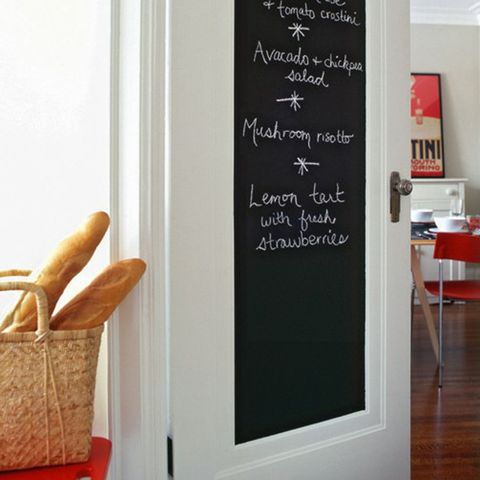 & tomato crostini
Avacado + chickpea
salad
Mushroom risotto
Lemon tart
with fresh
strawberries
TINI
TORINO